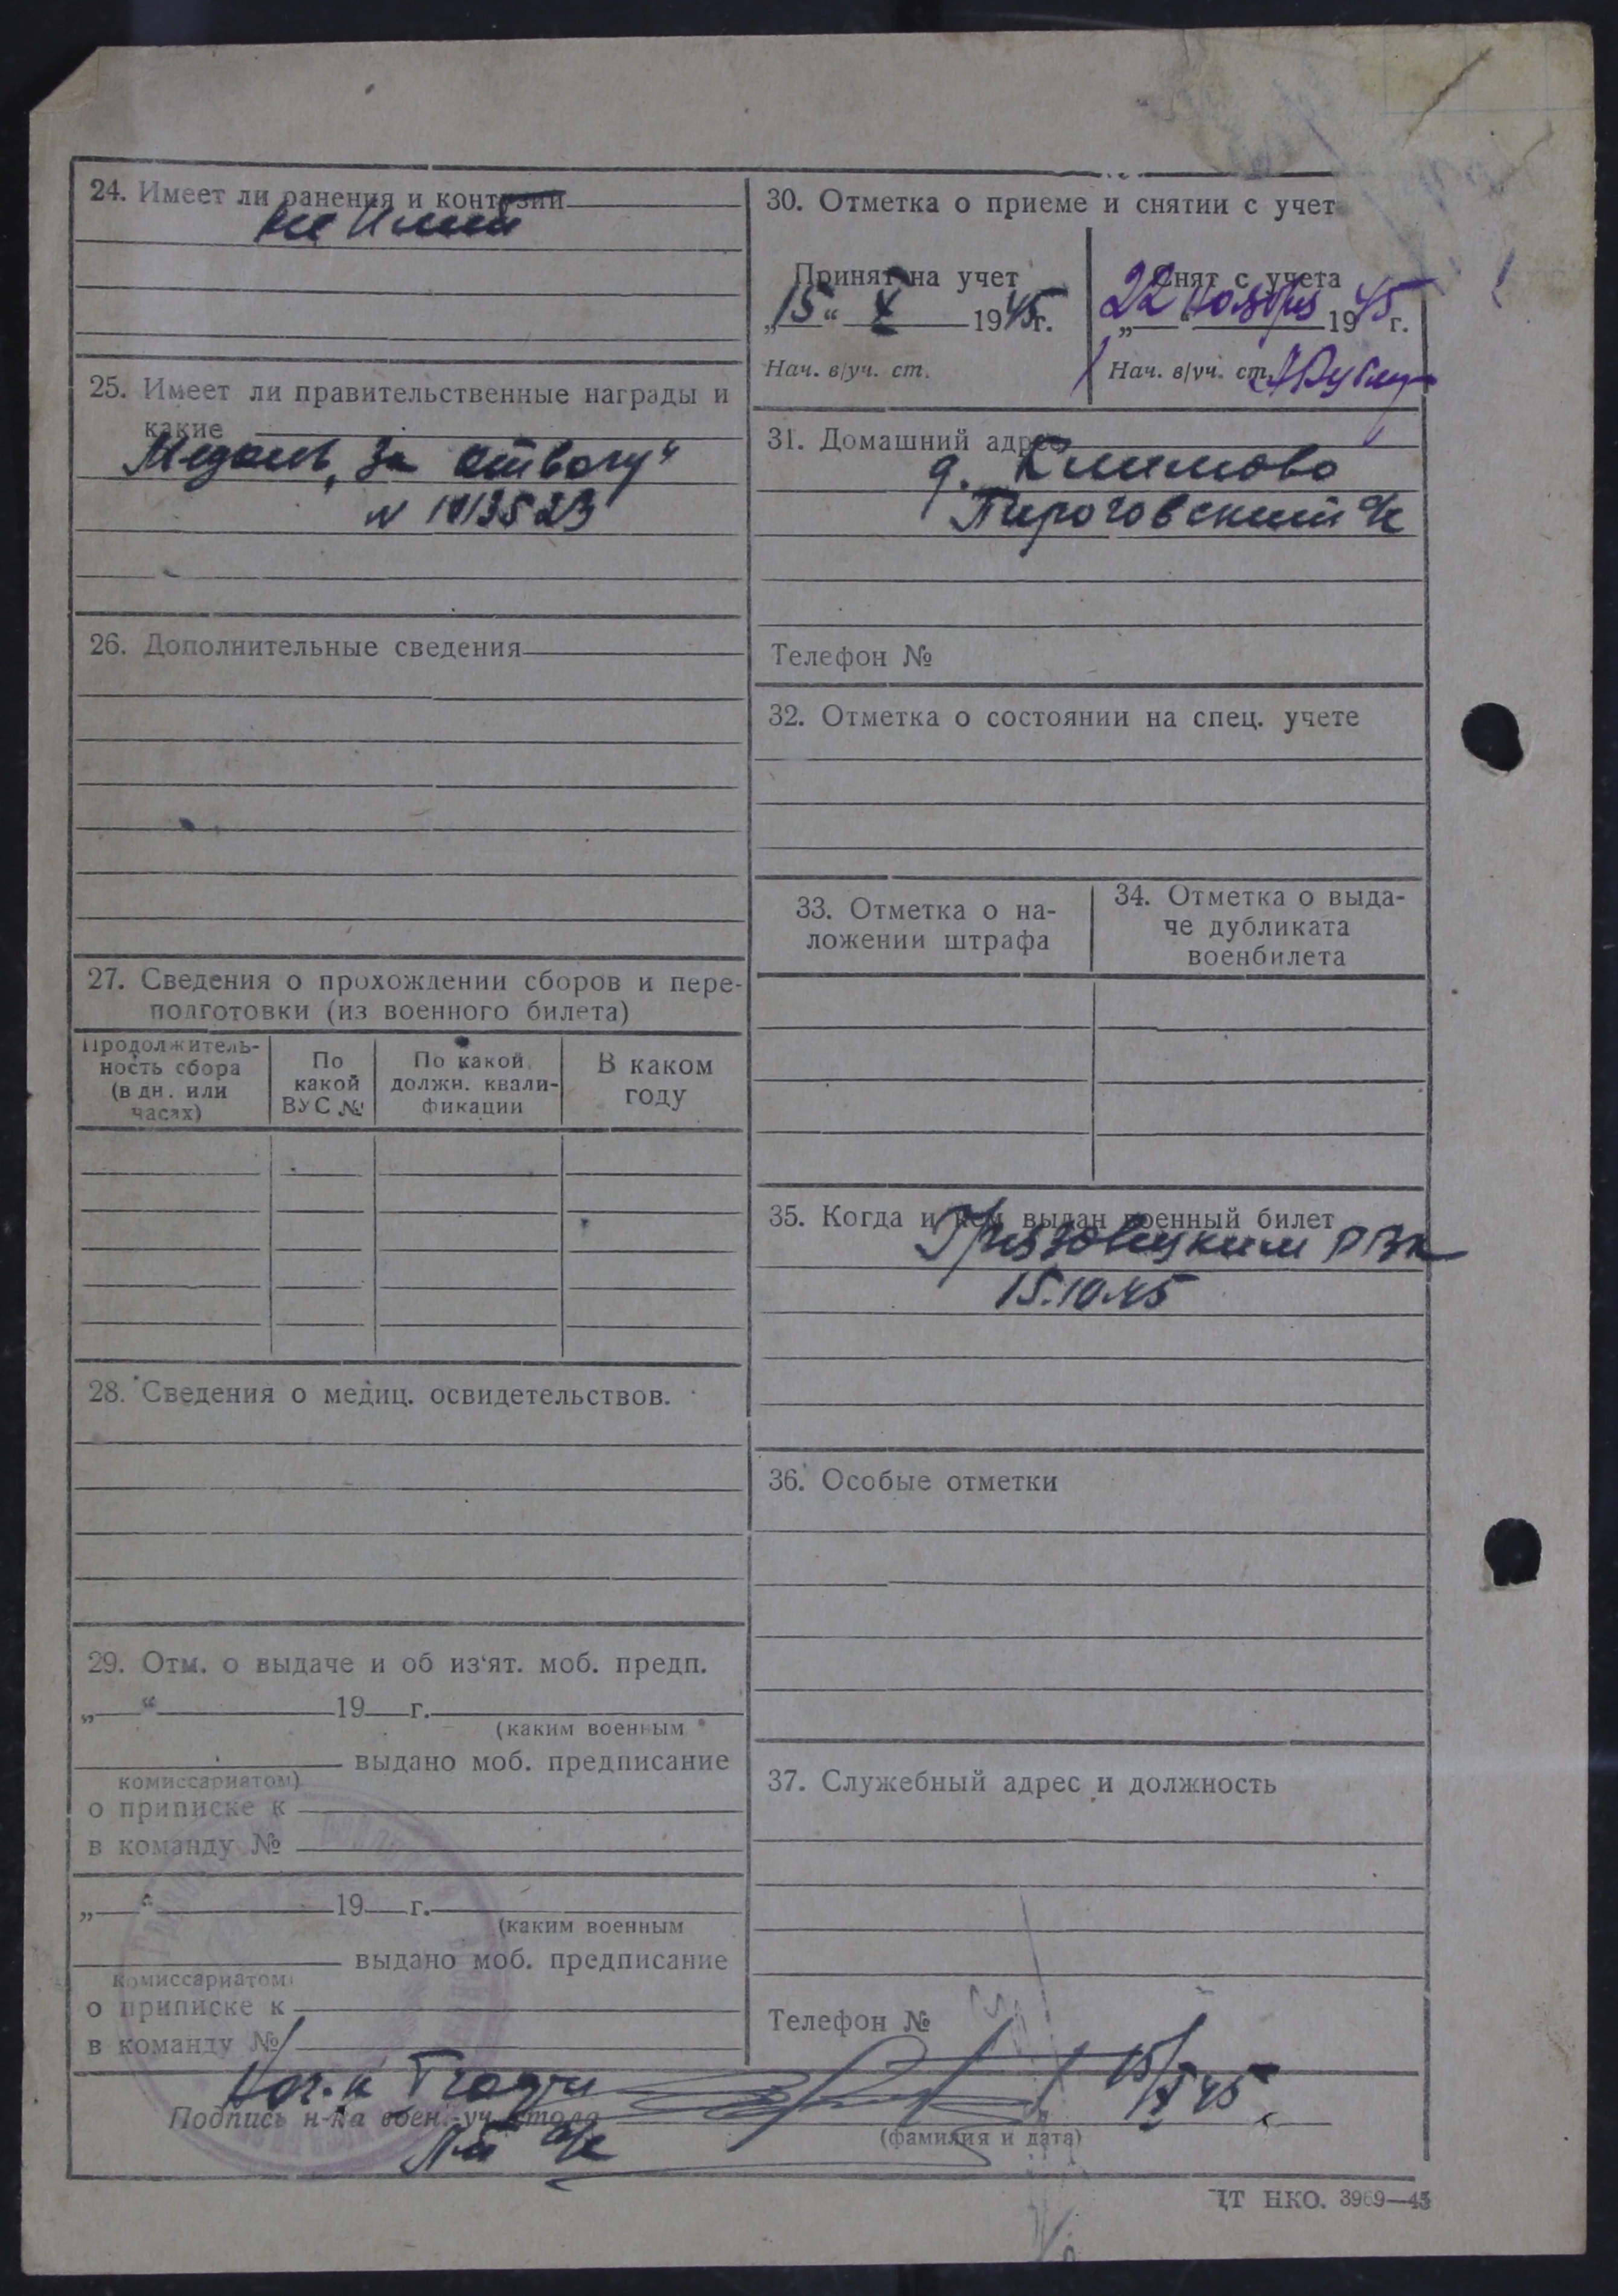 24. Имеет ли ранения и контузии
не Имеет
25. Имеет ли правительственные награды и
какие
Медаль „За отвагу“
N 1013523
26. Дополнительные сведения
27. Сведения о прохождении сборов и пере-
подготовки (из военного билета)
Продолжитель-
ность сбора
(в дн. или
часах)
По
какой
ВУС №
По какой
должн. квали-
фикации
В каком
году
28. Сведения о медиц. освидетельствов.
29. Отм. о выдаче и об из‘ят. моб. предп.
„ “ 19 г.
(каким военным
выдано моб. предписание
комиссариатом)
о приписке к
в команду №
„ “ 19 г.
(каким военным
выдано моб. предписание
комиссариатом)
о приписке к
в команду №
30. Отметка о приеме и снятии с учет
Принят на учет
„15“ X 1945г.
Нач. в/уч. ст.
Снят с учета
„22“ ноября 1945 г.
Нач. в/уч. ст.
31. Домашний адрес
д. Климово
Пироговский с/с
Телефон №
32. Отметка о состоянии на спец. учете
33. Отметка о на-
ложении штрафа
34. Отметка о выда-
че дубликата
военбилета
35. Когда и кем выдан военный билет
Грязовецким РВК
15.10.45
36. Особые отметки
37. Служебный адрес и должность
Телефон №
15/X 45
Подпись н-ка воен.-уч. стола
(фамилия и дата)
ЦТ НКО. 3969—45